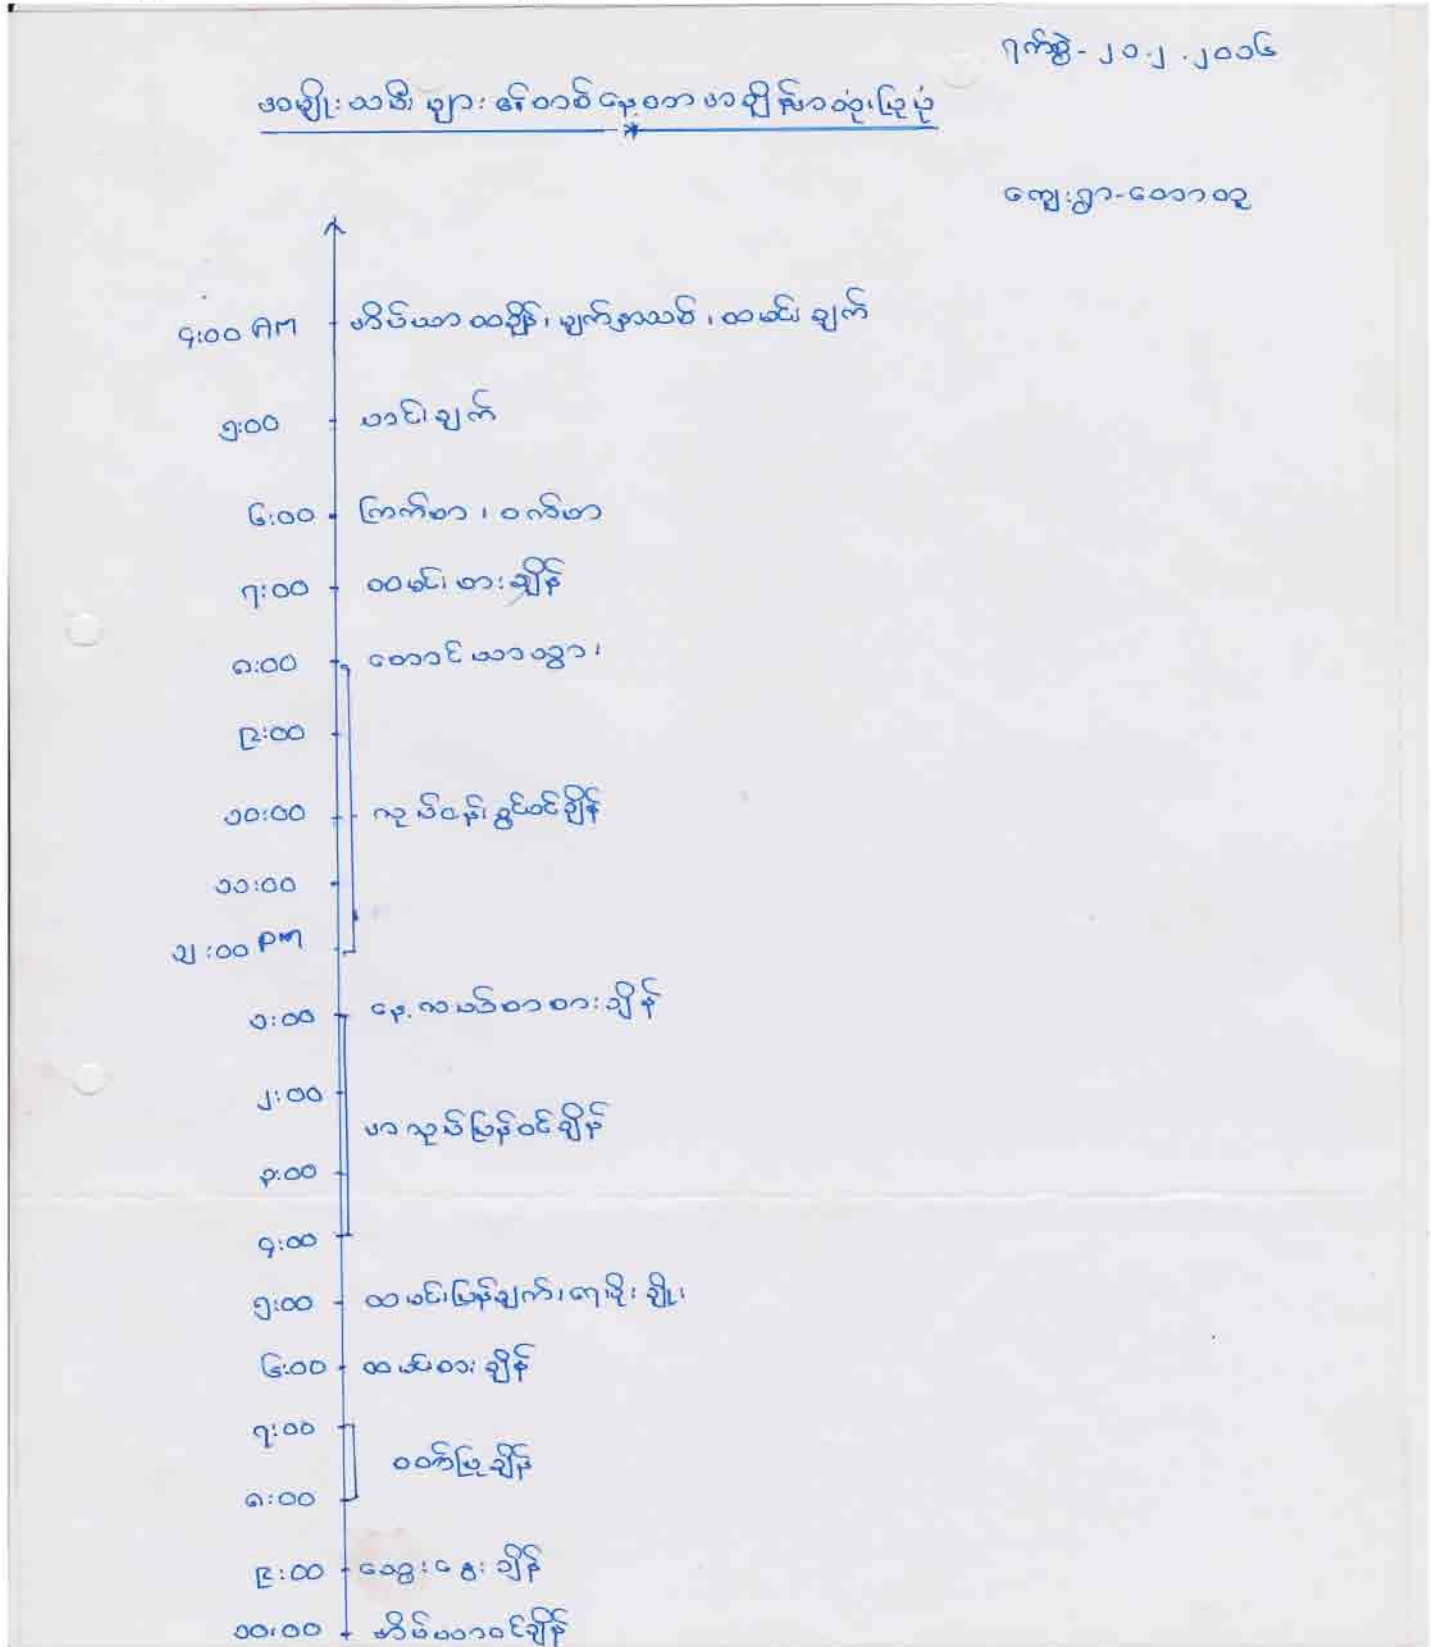 ရက်စွဲ-၂၀.၂.၂၀၁၆
အမျိုးသမီးများ၏တစ်နေ့တာအချိန်အသုံးပြုပုံ
ကျေးရွာ-
၄:၀၀ AM အိပ်ယာထချိန်၊ မျက်နှာသစ်၊ ထမင်းချက်
၅:၀၀ ဟင်းချက်
၆:၀၀ ကြက်စာ၊ ဝက်စာ
၇:၀၀ ထမင်းစားချိန်
၈:၀၀ တောင်ယာသွား၊
၉:၀၀
၁၀:၀၀ လုပ်ငန်းခွင်ဝင်ချိန်
၁၁:၀၀
၁၂:၀၀ PM
၁:၀၀ နေ့လယ်စာစားချိန်
၂:၀၀
အလုပ်ပြန်ဝင်ချိန်
၃:၀၀
၄:၀၀
၅:၀၀ ထမင်းပြန်ချက်၊ ရေမိုးချိုး
၆:၀၀ ထမင်းစားချိန်
၇:၀၀
ဝတ်ပြုချိန်
၈:၀၀
၉:၀၀ ဆွေးနွေးချိန်
၁၀:၀၀ အိပ်ယာဝင်ချိန်